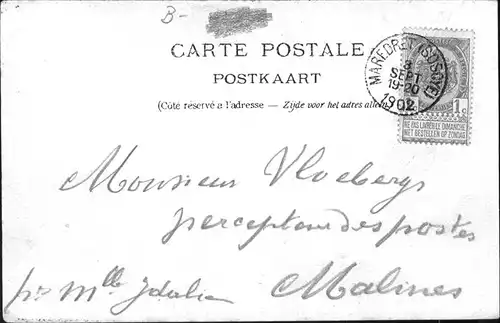 B-
CARTE POSTALE
POSTKAART
(Côté réservé à l'adresse — Zijde voor het adres alleen
MAREDRET (SOSOYE)
8
SEPT
19-20
1902
1c
NE PAS LIVRER LE DIMANCHE
NIET BESTELLEN OP ZONDAG
Monsieur Vloebergs
percepteur des postes
pr Mlle Idalie Malines